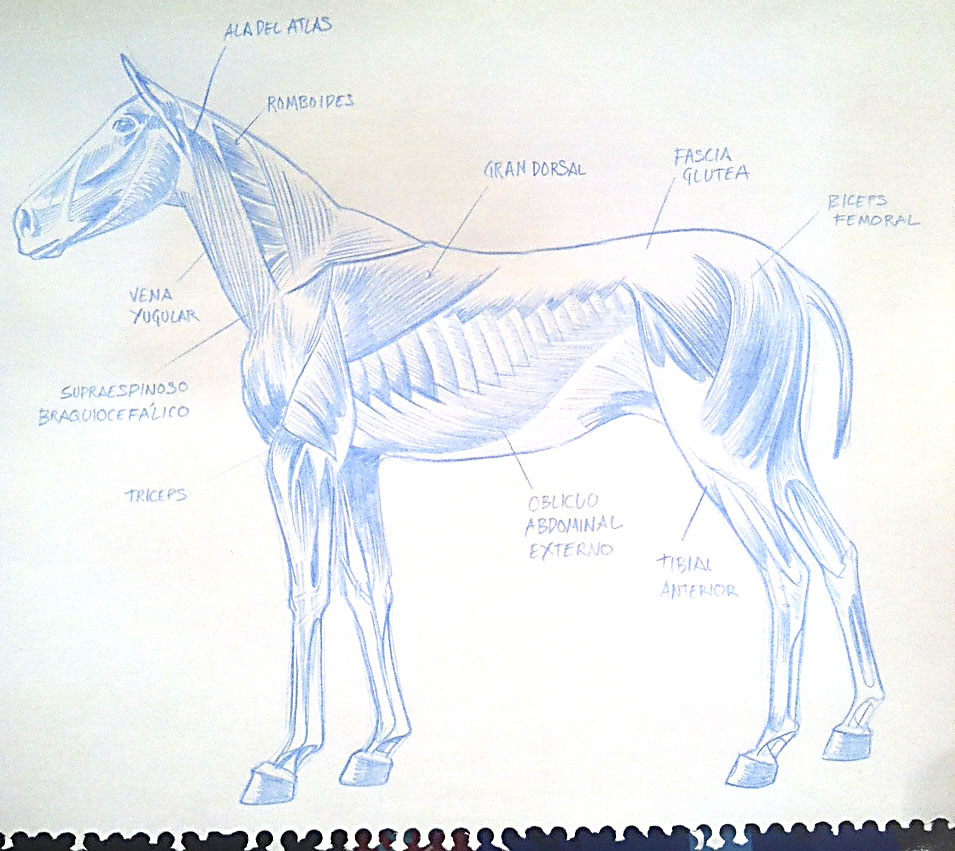 ALA DEL ATLAS
ROMBOIDES
GRAN DORSAL
FASCIA
GLUTEA
BICEPS
FEMORAL
VENA
YUGULAR
SUPRAESPINOSO
BRAQUIOCEFÁLICO
TRICEPS
OBLICUO
ABDOMINAL
EXTERNO
TIBIAL
ANTERIOR